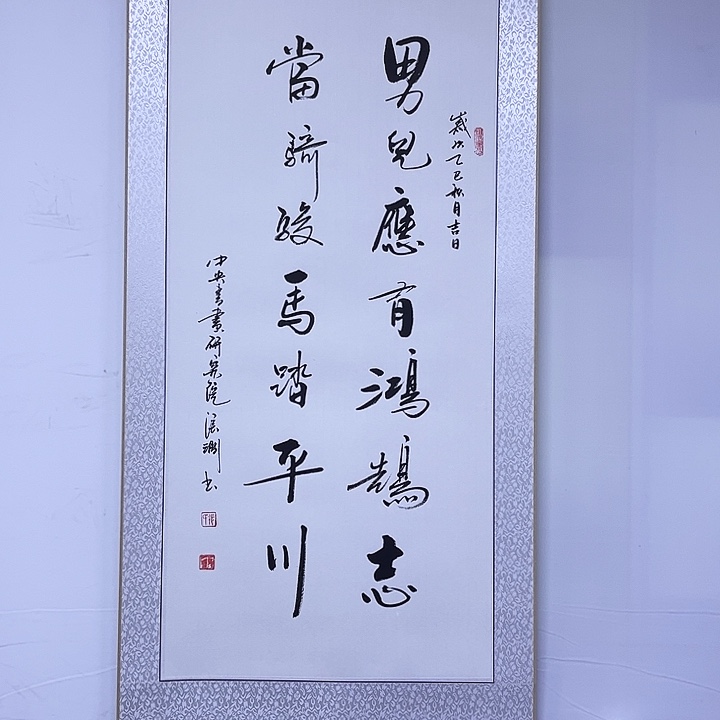 歲次乙巳月吉日
男兒應有鴻鵠志
當騎駿馬踏平川
中央書畫研究院書